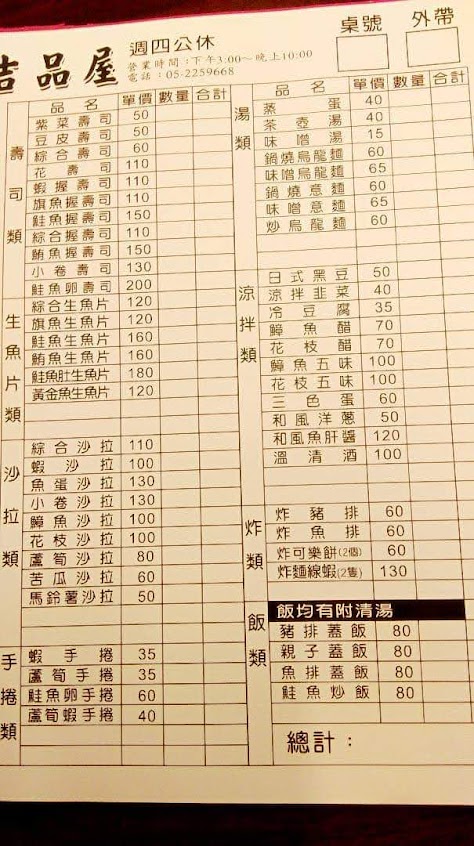 吉品屋
週四公休
營業時間:下午3:00～晚上10:00
電話:05-2259668
桌號 外帶
品名 單價 數量 合計
壽司類
紫菜壽司 50
豆皮壽司 50
綜合壽司 60
花壽司 110
蝦握壽司 110
旗魚握壽司 110
鮭魚握壽司 150
綜合握壽司 110
鮪魚握壽司 150
小卷壽司 130
鮭魚卵壽司 200
生魚片類
綜合生魚片 120
旗魚生魚片 120
鮭魚生魚片 160
鮪魚生魚片 160
鮭魚肚生魚片 180
黃金魚生魚片 120
沙拉類
綜合沙拉 110
蝦沙拉 100
魚蛋沙拉 130
小卷沙拉 130
鱆魚沙拉 100
花枝沙拉 100
蘆筍沙拉 80
苦瓜沙拉 60
馬鈴薯沙拉 50
手捲類
蝦手捲 35
蘆筍手捲 35
鮭魚卵手捲 60
蘆筍蝦手捲 40
品名 單價 數量 合計
湯類
蒸蛋 40
茶壺湯 40
味噌湯 15
鍋燒烏龍麵 60
味噌烏龍麵 65
鍋燒意麵 60
味噌意麵 65
炒烏龍麵 60
涼拌類
日式黑豆 50
涼拌韭菜 40
冷豆腐 35
鱆魚醋 70
花枝醋 70
鱆魚五味 100
花枝五味 100
三色蛋 60
和風洋蔥 50
和風魚肝醬 120
溫清酒 100
炸類
炸豬排 60
炸魚排 60
炸可樂餅(2個) 60
炸麵線蝦(2隻) 130
飯類
飯均有附清湯
豬排蓋飯 80
親子蓋飯 80
魚排蓋飯 80
鮭魚炒飯 80
總計: